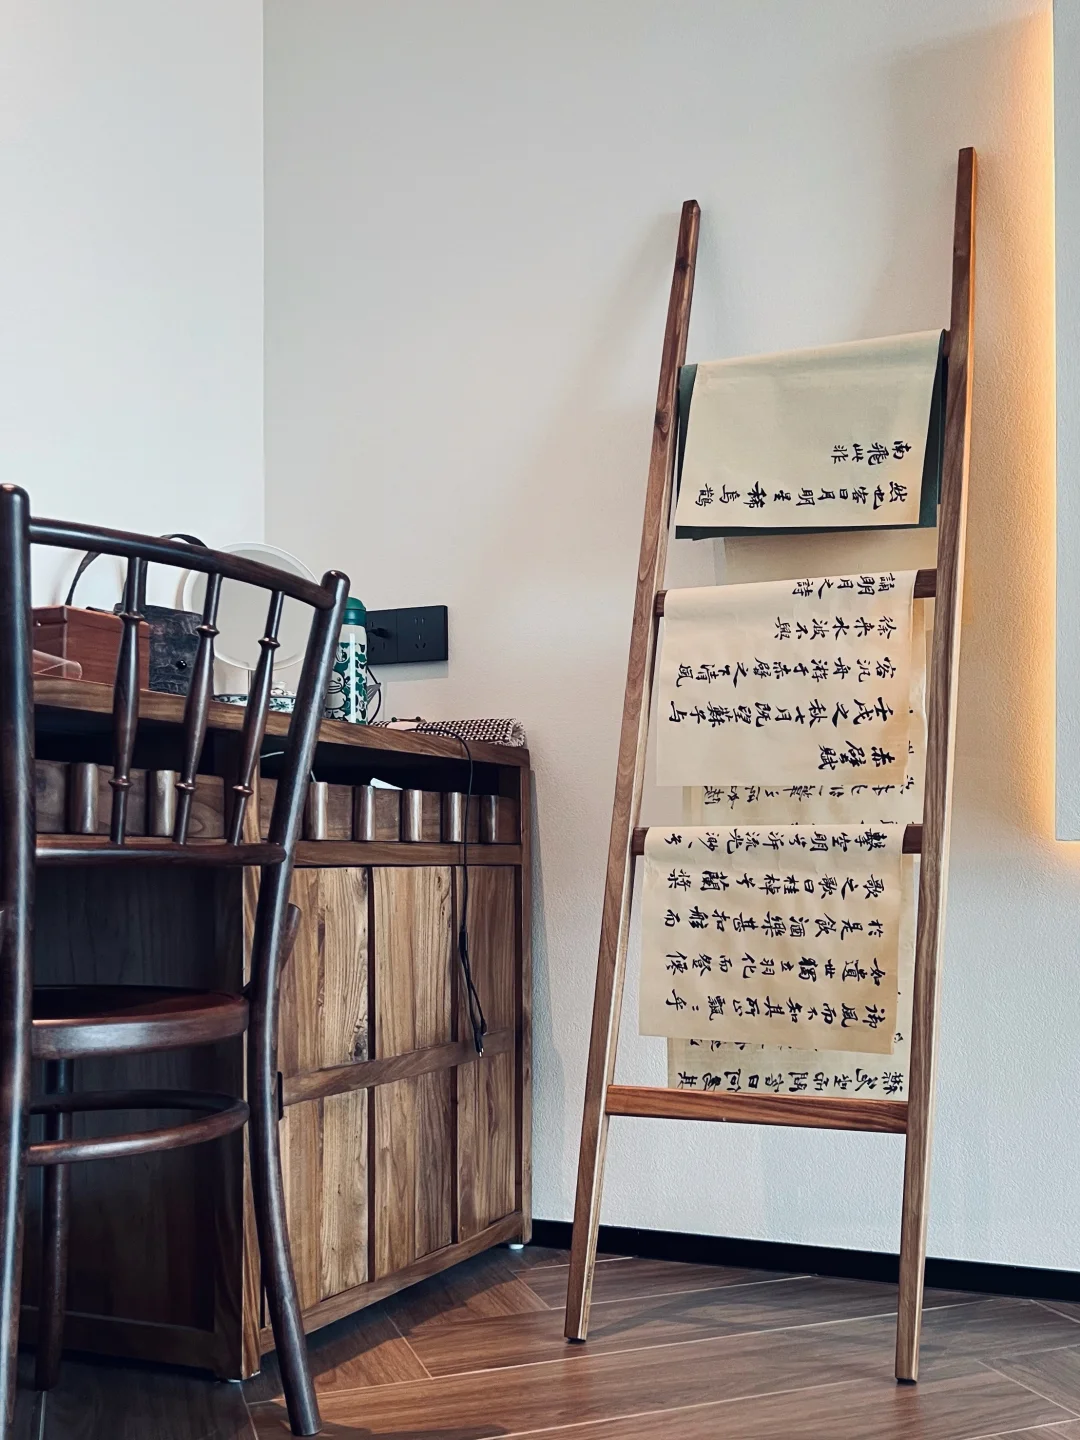 赤壁賦
壬戌之秋七月既望蘇子与
客汎舟游于赤壁之下清風
徐来水波不興
誦明月之詩
御風而不知其所止飄〻乎
如遺世獨立羽化而登僊
於是飲酒樂甚扣舷而
歌之歌曰桂棹兮蘭槳
擊空明兮泝流光渺〻兮
然也客曰月明星稀烏鵲
南飛此非